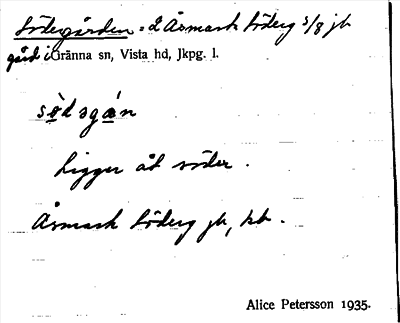 Södergården = 2 Åsmark Söderg 5/8 jb
gård i Gränna sn, Vista hd, Jkpg. l.
sö̀dsgán
Ligger åt söder.
Åsmark Söderg jb, kb.
Alice Petersson 1935.